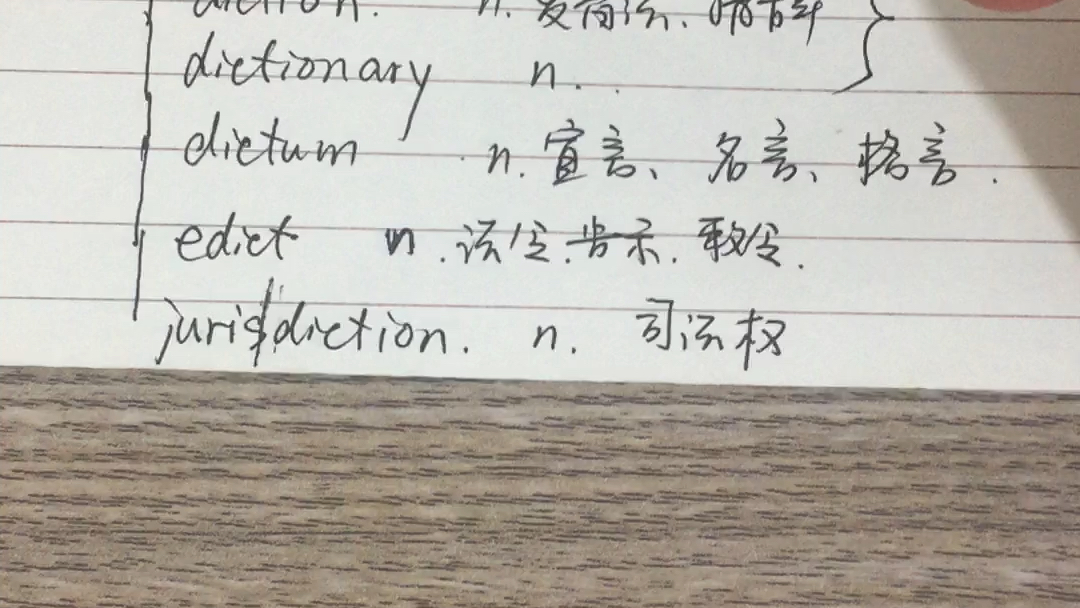 diction. n.
dictionary n.
dictum n. 宣言、名言、格言.
edict n. 法令.告示.敕令.
jurisdiction. n. 司法权